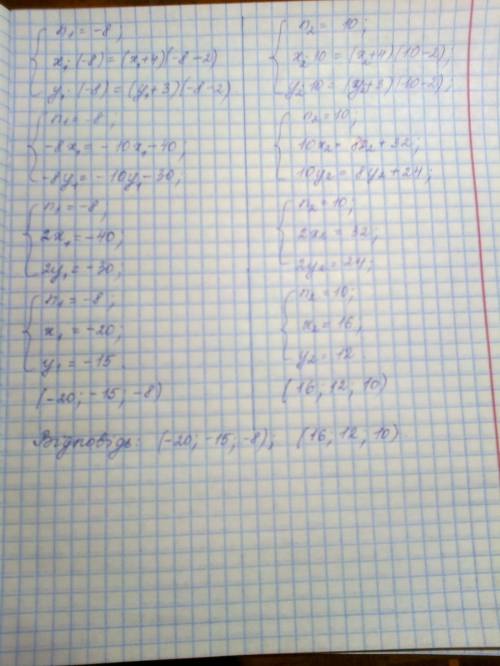 n₁ = -8;
x₁·(-8) = (x₁+4)(-8-2)
y₁·(-8) = (y₁+3)(-8-2)
n₁ = -8;
-8x₁ = -10x₁-40;
-8y₁ = -10y₁-30;
n₁ = -8;
2x₁ = -40;
2y₁ = -30;
n₁ = -8;
x₁ = -20;
y₁ = -15.
(-20; -15; -8)
n₂ = 10;
x₂·10 = (x₂+4)(10-2);
y₂·10 = (y₂+3)(10-2);
n₂ = 10;
10x₂ = 8x₂+32;
10y₂ = 8y₂+24;
n₂ = 10;
2x₂ = 32;
2y₂ = 24;
n₂ = 10;
x₂ = 16;
y₂ = 12.
(16; 12; 10)
Відповідь: (-20; -15; -8); (16; 12; 10)